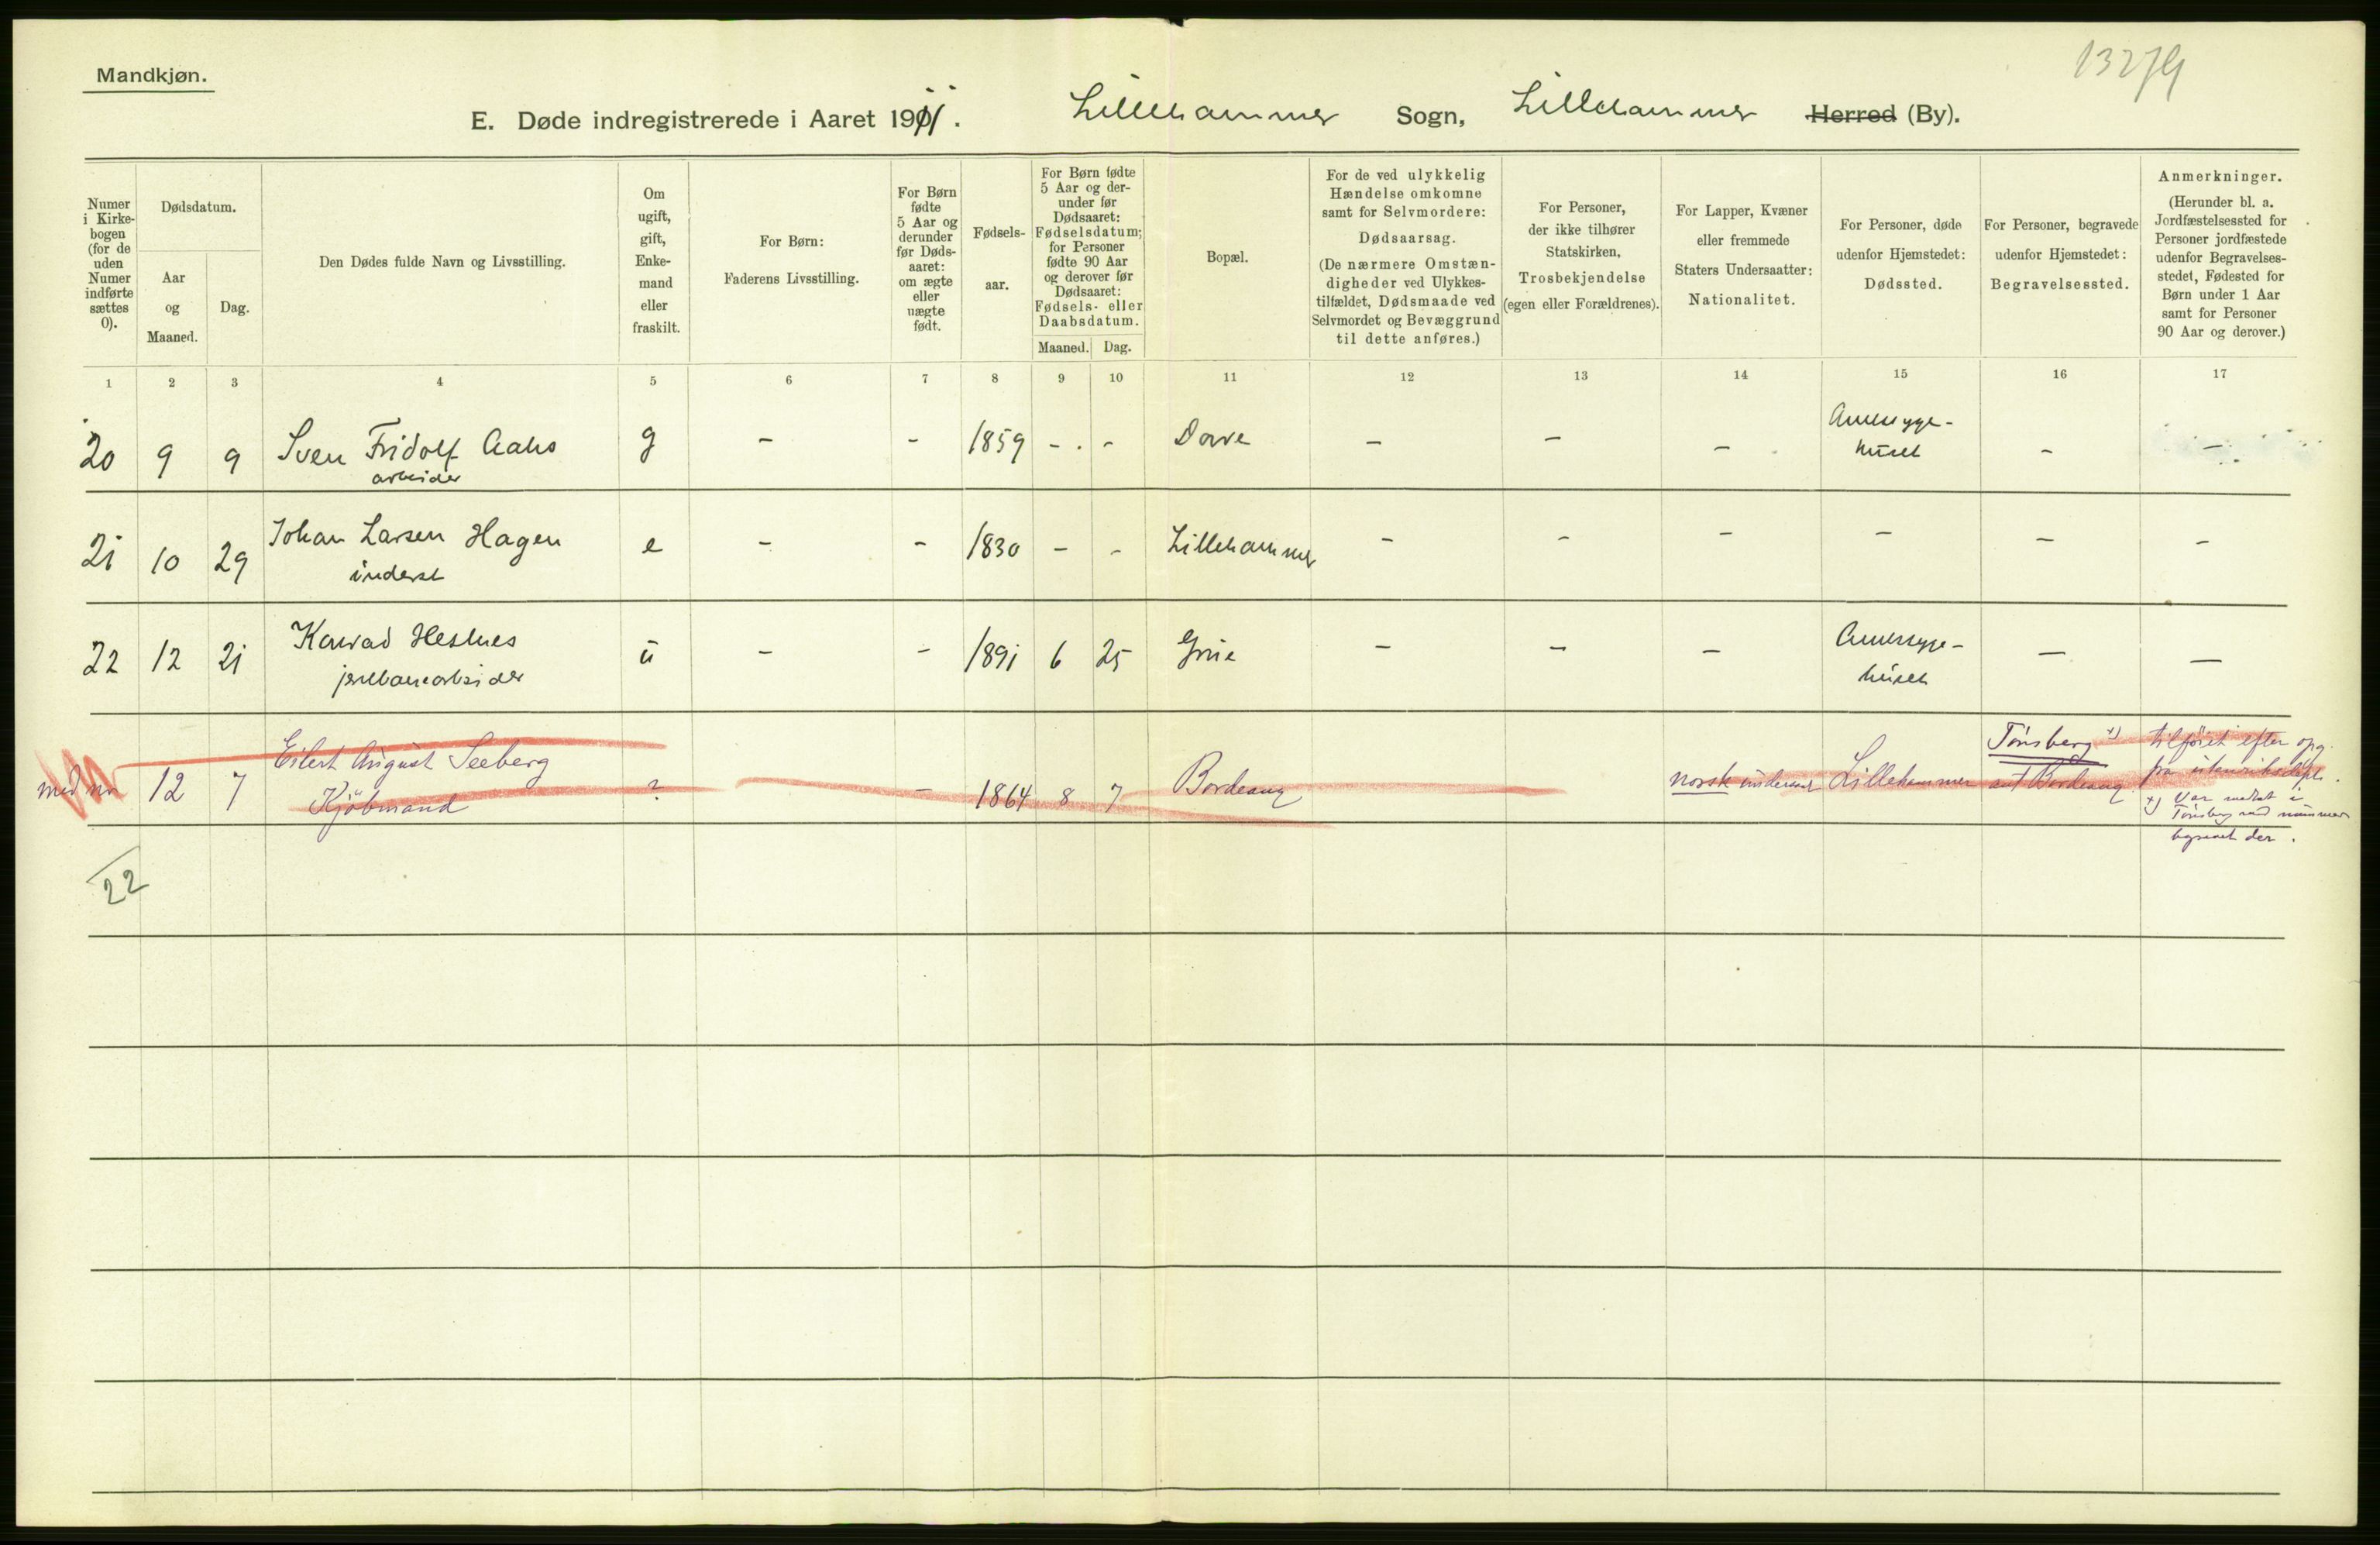 13279
Mandkjøn.
E. Døde indregistrerede i Aaret 1911. Lillehammer Sogn, Lillehammer Herred (By).
Numer
i Kirke-
bogen
(for de
uden
Numer
indførte
sættes
0).
Dødsdatum.
Aar
og
Maaned.
Dag.
Den Dødes fulde Navn og Livsstilling.
Om
ugift,
gift,
Enke-
mand
eller
fraskilt.
For Børn:
Faderens Livsstilling.
For Børn
fødte
5 Aar og
derunder
før Døds-
aaret:
om ægte
eller
uægte
født.
Fødsels-
aar.
For Børn fødte
5 Aar og der-
under før
Dødsaaret:
Fødselsdatum;
for Personer
fødte 90 Aar
og derover før
Dødsaaret:
Fødsels- eller
Daabsdatum.
Maaned. Dag.
Bopæl.
For de ved ulykkelig
Hændelse omkomne
samt for Selvmordere:
Dødsaarsag.
(De nærmere Omstæn-
digheder ved Ulykkes-
tilfældet, Dødsmaade ved
Selvmordet og Bevæggrund
til dette anføres.)
For Personer,
der ikke tilhører
Statskirken,
Trosbekjendelse
(egen eller Forældrenes).
For Lapper, Kvæner
eller fremmede
Staters Undersaatter:
Nationalitet.
For Personer, døde
udenfor Hjemstedet:
Dødssted.
For Personer, begravede
udenfor Hjemstedet:
Begravelsessted.
Anmerkninger.
(Herunder bl. a.
Jordfæstelsessted for
Personer jordfæstede
udenfor Begravelses-
stedet, Fødested for
Børn under 1 Aar
samt for Personer
90 Aar og derover.)
1 2 3 4 5 6 7 8 9 10 11 12 13 14 15 16 17
20 9 9 Sven Fridolf g - - 1859 - - Dovre - - - Amtssyge- - -
arbeider huset
21 10 29 Johan Larsen Hagen e - - 1830 - - Lillehammer - - - - - -
inderst
22 12 21 Konrad Hesnes u - - 1891 6 25 Grue - - - Amtssyge- - -
jernbanearbeider huset
med nr 12 7 Eilert August Seeberg ? - 1864 8 7 Bordeaux norsk undersaat Lillehammer Tønsberg x) tilføiet efter opg.
Kjøbmand Bordeaux fra utenriksdept.
x) Var medtat i
Tønsberg med nummer
der.
22